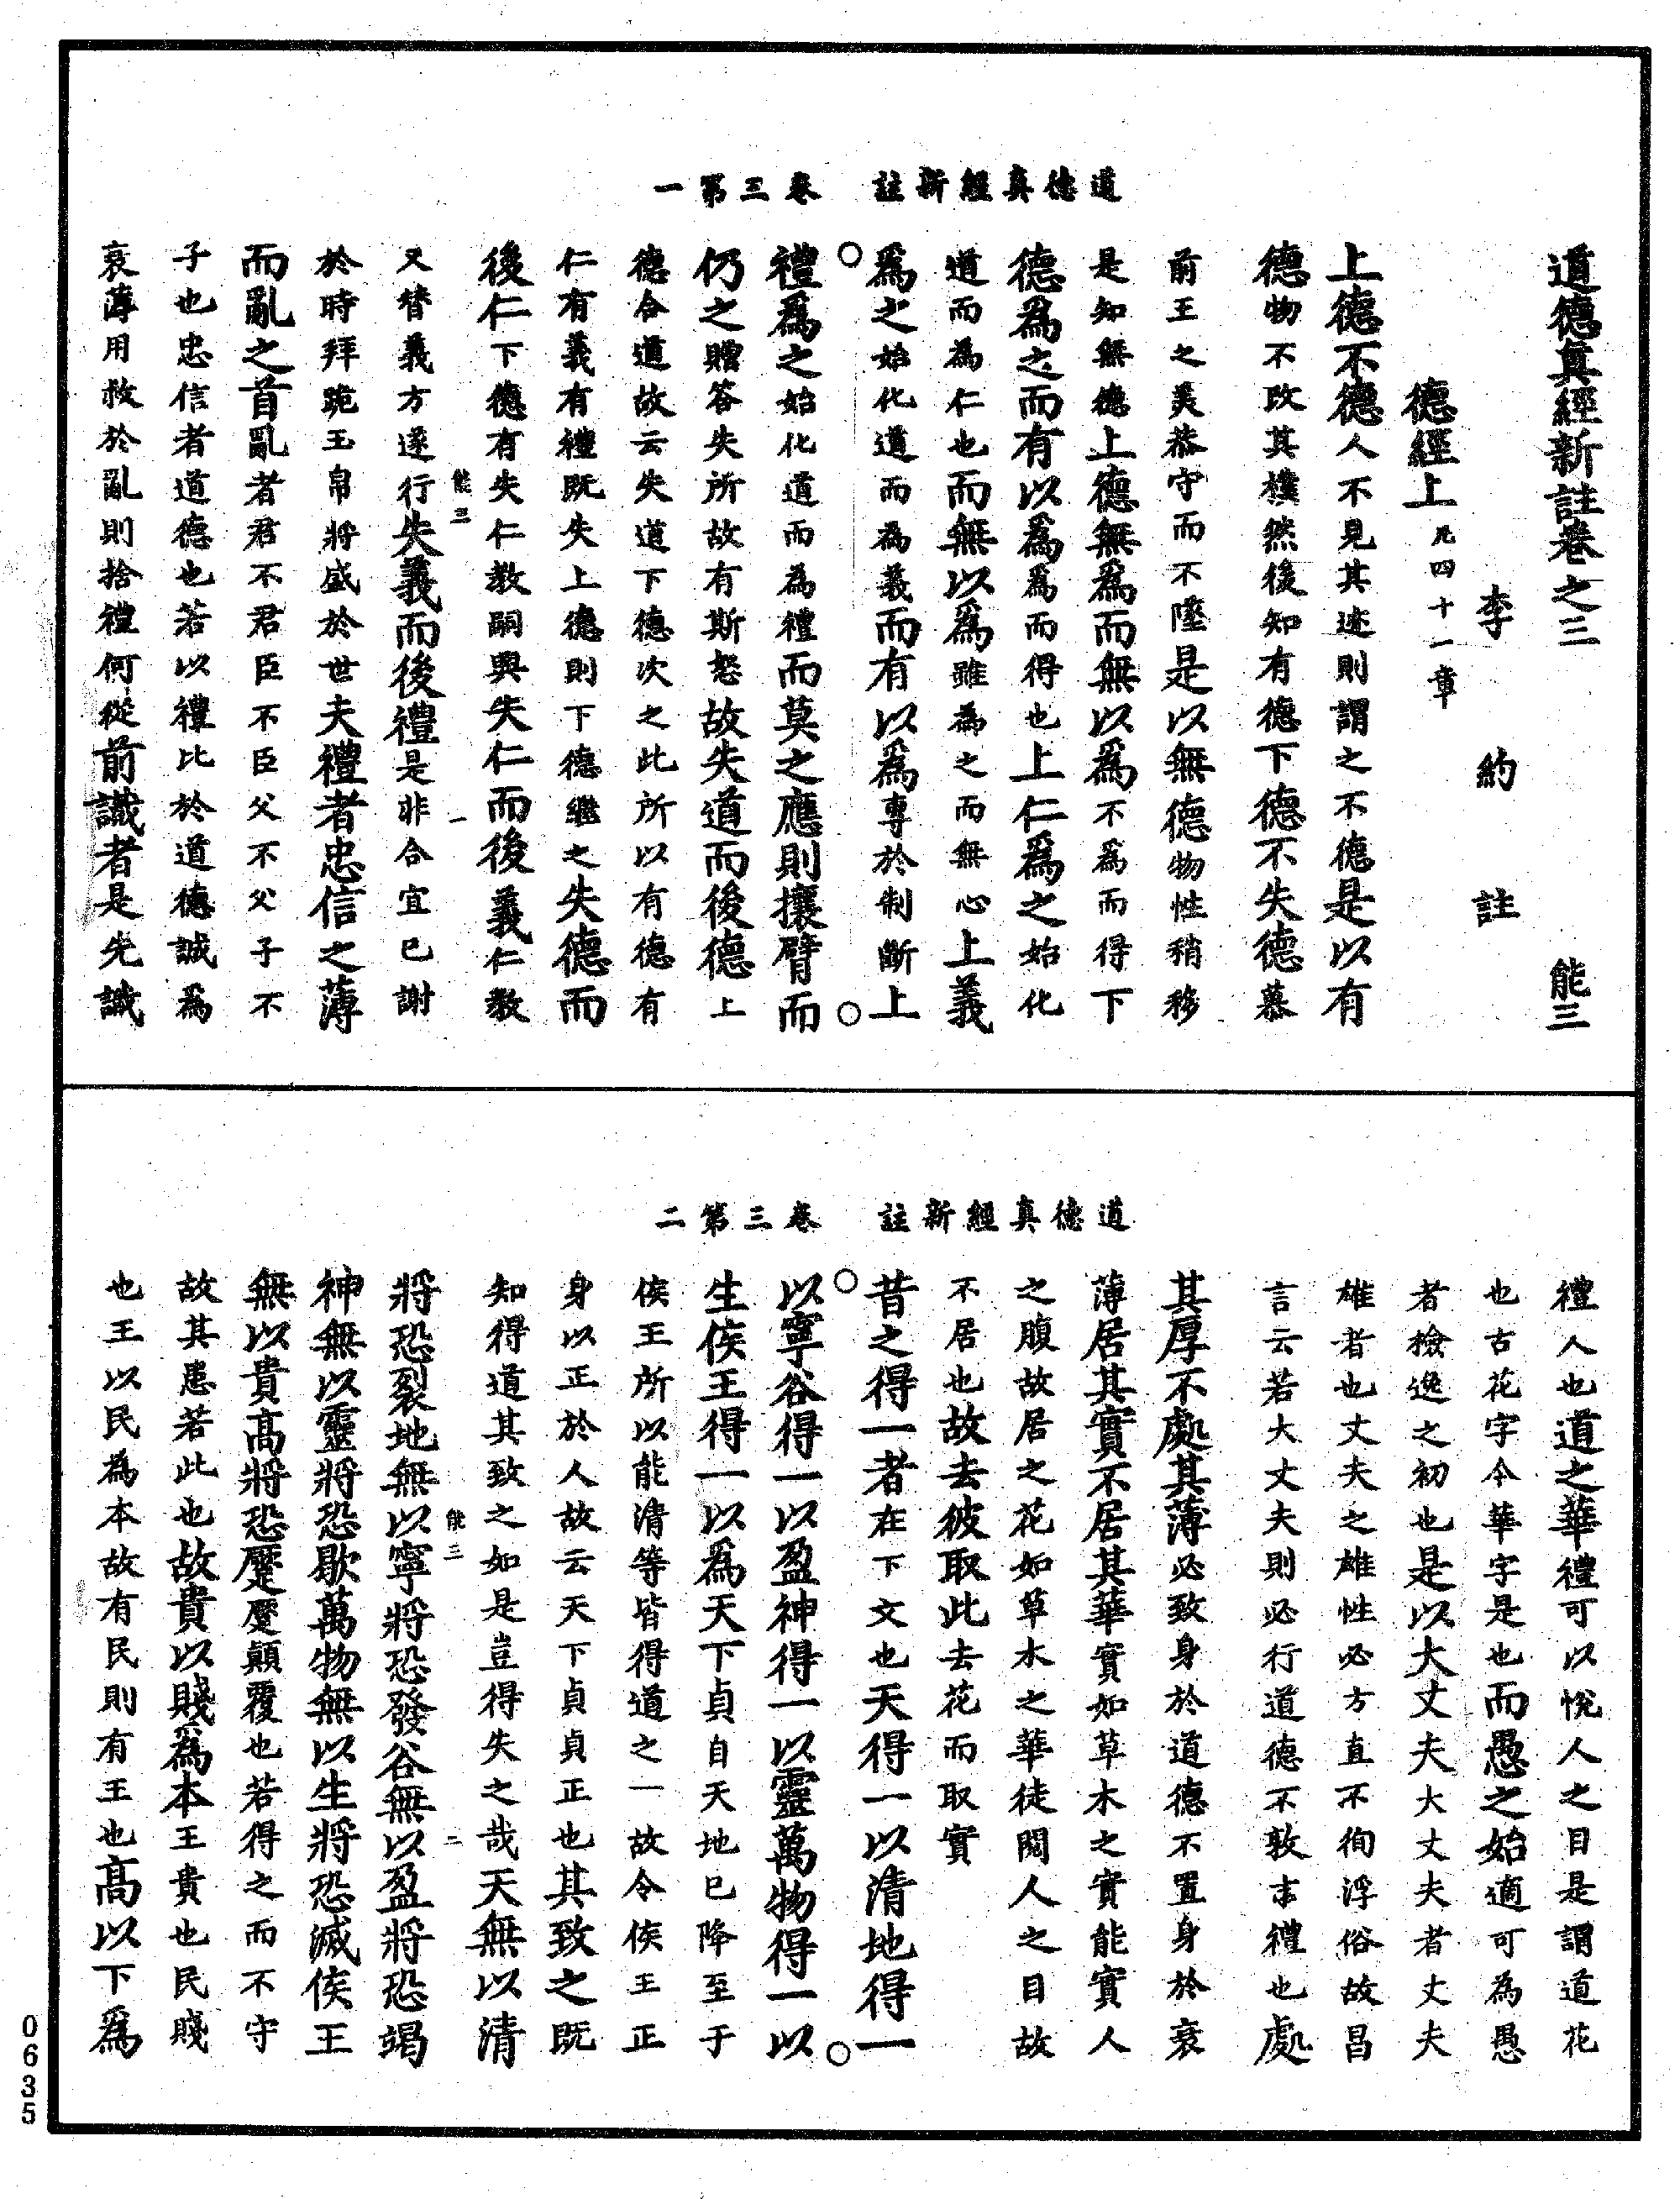 道德真經新註　卷三第一
道德真經新註卷之三　能三
李約註
德經上凡四十一章
上德不德人不見其迹則謂之不德是以有
德物不改其樸然後知有德下德不失德慕
前王之美恭守而不墜是以無德物性稍移
是知無德上德無為而無以為不為而得下
德為之而有以為為而得也上仁為之始化
道而為仁也而無以為雖為之而無心上義
為之始化道而為義而有以為專於制斷上
禮為之始化道而為禮而莫之應則攘臂而
仍之贈答失所故有斯怒故失道而後德上
德合道故云失道下德次之此所以有德有
仁有義有禮既失上德則下德繼之失德而
後仁下德有失仁教嗣興失仁而後義仁教
又替義方遂行失義而後禮是非合宜已謝
能三　一
於時拜跪玉帛將盛於世夫禮者忠信之薄
而亂之首亂者君不君臣不臣父不父子不
子也忠信者道德也若以禮比於道德誠為
衰薄用救於亂則捨禮何從前識者是先識
道德真經新註　卷三第二
禮人也道之華禮可以悅人之目是謂道花
也古花字今華字是也而愚之始適可為愚
者檢逸之初也是以大丈夫大丈夫者丈夫
雄者也丈夫之雄性必方直不徇浮俗故昌
言云若大丈夫則必行道德不敦末禮也處
其厚不處其薄必致身於道德不置身於衰
薄居其實不居其華實如草木之實能實人
之腹故居之花如草木之華徒閱人之目故
不居也故去彼取此去花而取實
昔之得一者在下文也天得一以清地得一
以寧谷得一以盈神得一以靈萬物得一以
生侯王得一以為天下貞自天地已降至于
侯王所以能清等皆得道之一故令侯王正
身以正於人故云天下貞貞正也其致之既
知得道其致之如是豈得失之哉天無以清
將恐裂地無以寧將恐發谷無以盈將恐竭
能三　二
神無以靈將恐歇萬物無以生將恐滅侯王
無以貴高將恐蹷蹷顛覆也若得之而不守
故其患若此也故貴以賤為本王貴也民賤
也王以民為本故有民則有王也高以下為
0635